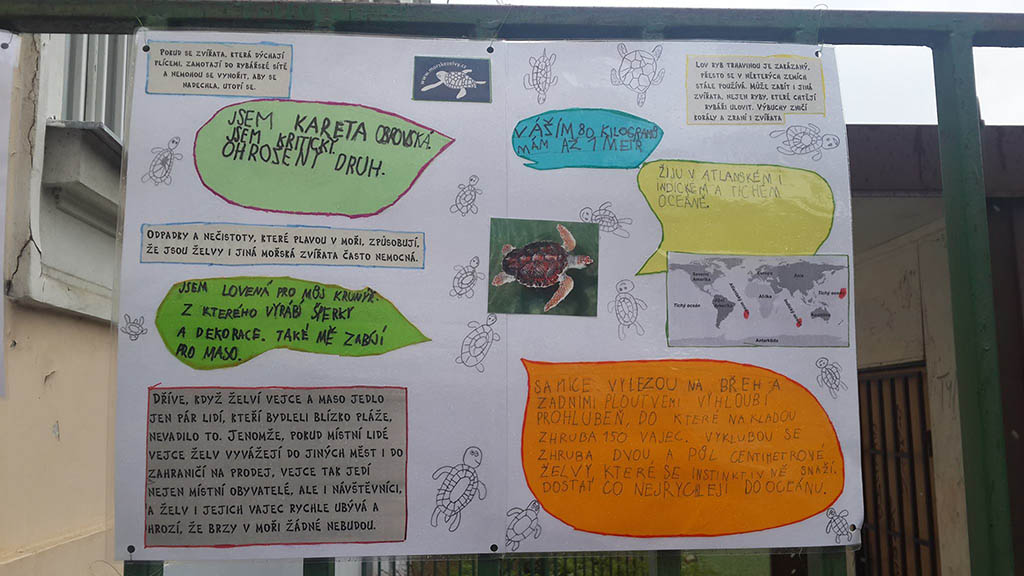 POKUD SE ZVÍŘATA, KTERÁ DÝCHAJÍ
PLÍCEMI, ZAMOTAJÍ DO RYBÁŘSKÉ SÍTĚ
A NEMOHOU SE VYNOŘIT, ABY SE
NADECHLA, UTOPÍ SE.
JSEM KARETA OBROVSKÁ.
JSEM KRITICKÝ
OHROŽENÝ DRUH.
ODPADKY A NEČISTOTY, KTERÉ PLAVOU V MOŘI, ZPŮSOBUJÍ,
ŽE JSOU ŽELVY I JINÁ MOŘSKÁ ZVÍŘATA ČASTO NEMOCNÁ.
JSEM LOVENÁ PRO MŮJ KRUNÝŘ.
Z KTERÉHO VYRÁBÍ ŠPERKY
A DEKORACE. TAKÉ MĚ ZABÍJÍ
PRO MASO.
DŘÍVE, KDYŽ ŽELVÍ VEJCE A MASO JEDLO
JEN PÁR LIDÍ, KTEŘÍ BYDLELI BLÍZKO PLÁŽE,
NEVADILO TO. JENOMŽE, POKUD MÍSTNÍ LIDÉ
VEJCE ŽELV VYVÁŽEJÍ DO JINÝCH MĚST I DO
ZAHRANIČÍ NA PRODEJ, VEJCE TAK JEDÍ
NEJEN MÍSTNÍ OBYVATELÉ, ALE I NÁVŠTĚVNÍCI,
A ŽELV I JEJICH VAJEC RYCHLE UBÝVÁ A
HROZÍ, ŽE BRZY V MOŘI ŽÁDNÉ NEBUDOU.
LOV RYB TRHAVINOU JE ZAKÁZANÝ,
PŘESTO SE V NĚKTERÝCH ZEMÍCH
STÁLE POUŽÍVÁ. MŮŽE ZABÍT I JINÁ
ZVÍŘATA, NEJEN RYBY, KTERÉ CHTĚJÍ
RYBÁŘI ULOVIT. VÝBUCHY ZNIČÍ
KORÁLY A ZRANÍ I ZVÍŘATA
VÁŽÍM 80 KILOGRAMŮ
MÁM AŽ 1 METR
ŽIJU V ATLANSKÉM I
INDICKÉM A TICHÉM
OCEÁNĚ.
Severní Amerika
Evropa
Asie
Tichý oceán
Afrika
Tichý oceán
Antarktida
SAMICE VYLEZOU NA BŘEH A
ZADNÍMI PLOUTVEMI VYHLOUBÍ
PROHLUBEŇ, DO KTERÉ NAKLADOU
ZHRUBA 150 VAJEC. VYKLUBOU SE
ZHRUBA DVOU, A PŮL CENTIMETROVÉ
ŽELVY, KTERÉ SE INSTINKTIVNĚ SNAŽÍ
DOSTAT CO NEJRYCHLEJI DO OCEÁNU.